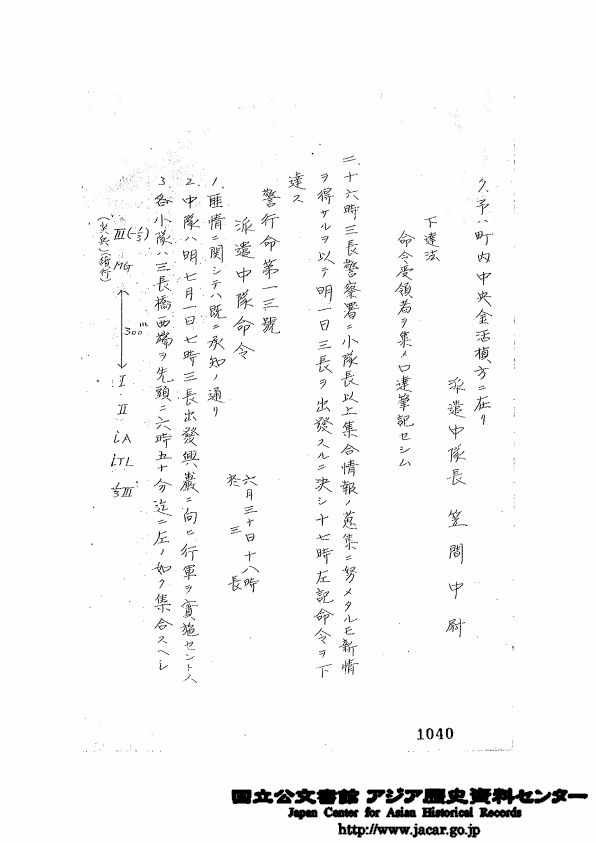 7. 予ハ町内中央金活楨方ニ在リ
派遣中隊長 笠間中尉
下達法
命令受領者ヲ集メ口達筆記セシム
二、十六時三長警察署ニ小隊長以上集合情報ノ蒐集ニ努メタルモ新情
ヲ得ザルヲ以テ明一日三長ヲ出發スルニ決シ十七時左記命令ヲ下
達ス
警行命第一三號
派遣中隊命令
六月三十日十八時
於 三長
1. 匪情ニ関シテハ既ニ承知ノ通リ
2. 中隊ハ明七月一日七時三長出發興巖ニ向ヒ行軍ヲ實施セントス
3. 各小隊ハ三長橋西端ヲ先頭ニ六時五十分迄ニ左ノ如ク集合スヘシ
III(-1/3)
MG
300m
I
II
iA
iTL
1/3III
1040
国立公文書館 アジア歴史資料センター
Japan Center for Asian Historical Records
http://www.jacar.go.jp